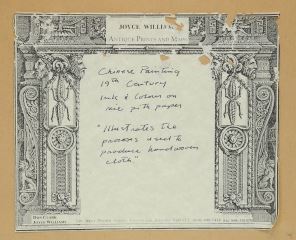 JOYCE WILLIAMS
ANTIQUE PRINTS AND MAPS
Chinese Painting
19th Century
Ink & Colors on
rice pith paper
"Illustrates the
process used to
produce handwoven
cloth"
DON CLARK
JOYCE WILLIAMS